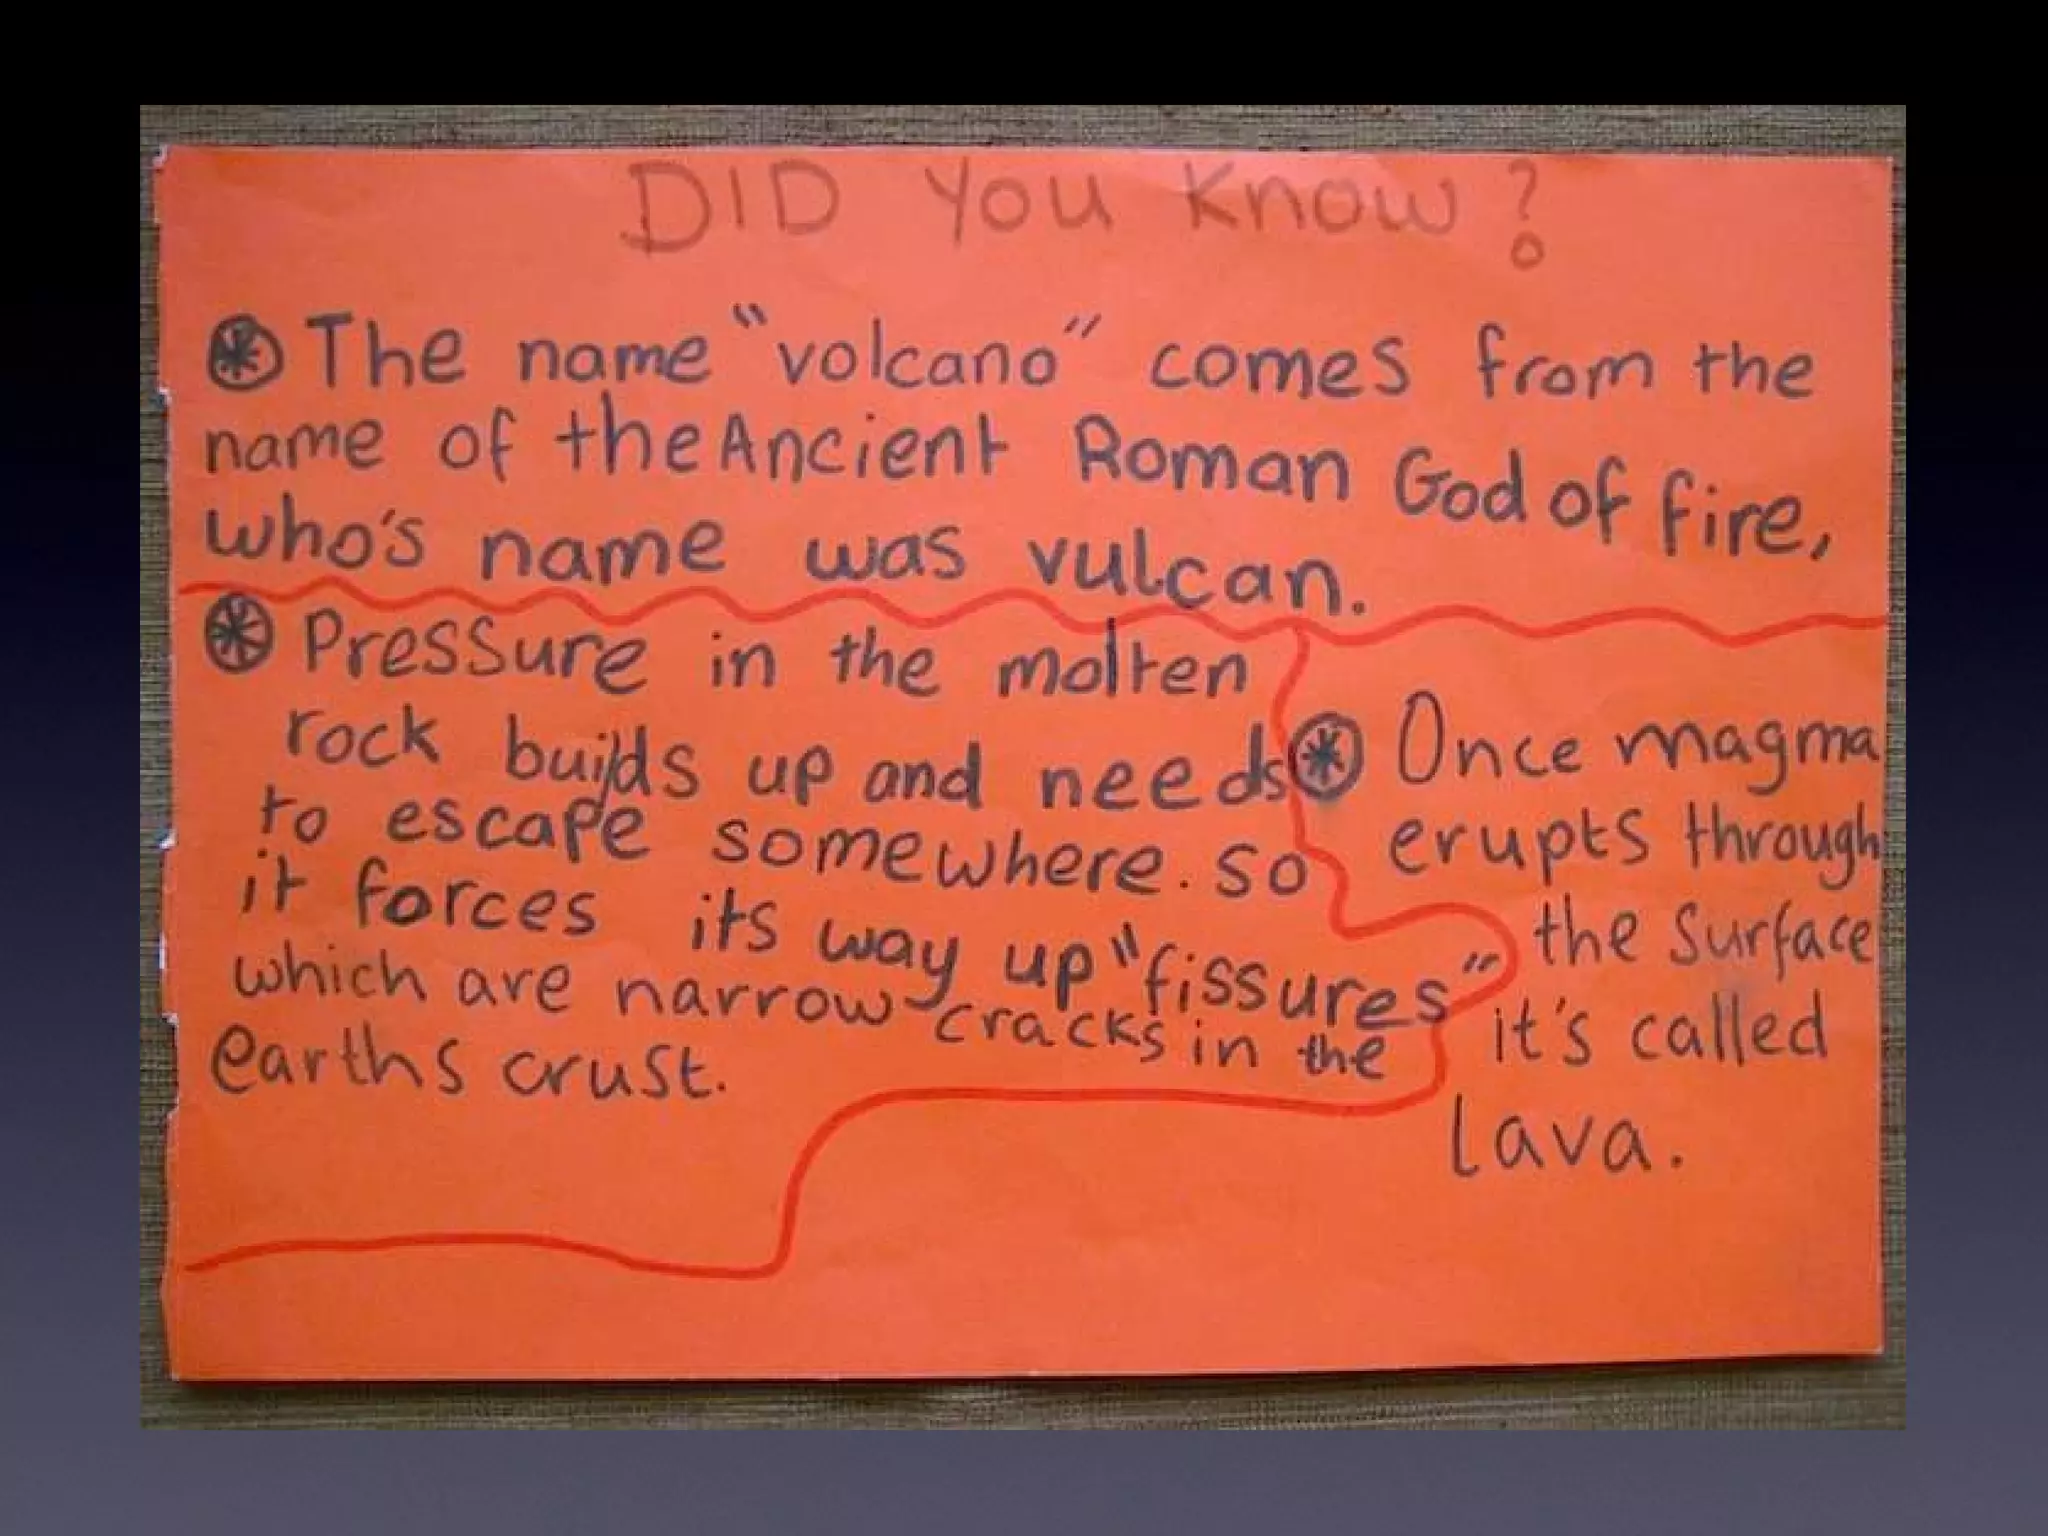 DID YOU KNOW?
The name "volcano" comes from the
name of the Ancient Roman God of fire,
who's name was vulcan.
Pressure in the molten
rock builds up and needs
to escape somewhere. so
it forces its way up "fissures"
which are narrow cracks in the
earths crust.
Once magma
erupts through
the surface
it's called
lava.